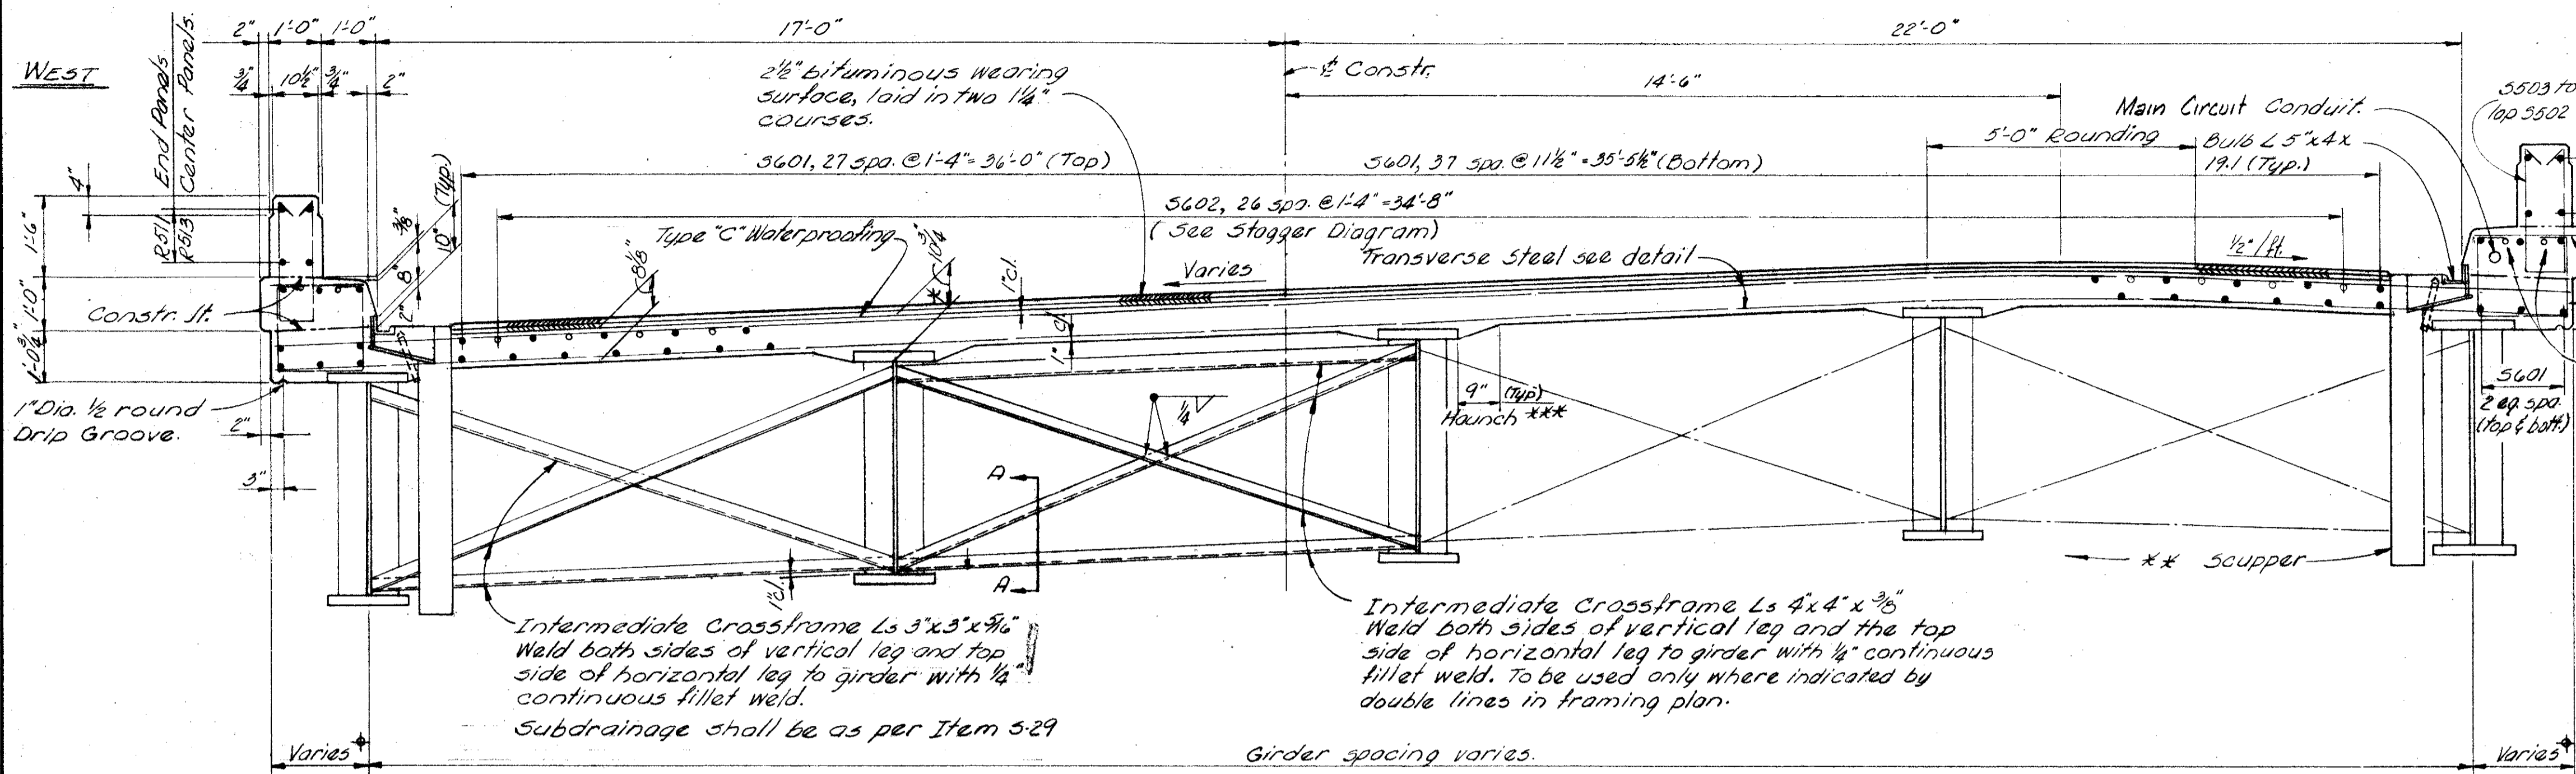 2" 1'-0" 1'-0"
17'-0"
22'-0"
WEST
R511 End Panels
R513 Center Panels.
3/4" 10 1/2" 3/4" 2"
2 1/2" bituminous wearing
surface, laid in two 1 1/4"
courses.
℄ Constr.
14'-6"
Main Circuit Conduit.
S503 to
lap S502
5'-0" Rounding
Bulb L 5"x4x
19.1 (Typ.)
S601, 27 spa. @ 1'-4" = 36'-0" (Top)
S601, 37 spa. @ 11 1/2" = 35'-5 1/2" (Bottom)
S602, 26 spa. @ 1'-4" = 34'-8"
(See Stagger Diagram)
4"
1'-6"
1'-0"
1'-0 3/4"
3/8"
10" (Typ.)
8"
2"
Type "C" Waterproofing
8 1/8"
* 10 3/4"
Varies
1" cl.
1" cl.
Transverse Steel see detail
1/2" / ft.
Constr. Jt.
1" Dia. 1/2 round
Drip Groove.
2"
3"
1/4
9" (Typ)
Haunch ***
S601
2 eq. spa.
(top & bott.)
A
A
1" cl.
** Scupper
Intermediate Crossframe Ls 3"x3"x5/16"
Weld both sides of vertical leg and top
side of horizontal leg to girder with 1/4"
continuous fillet weld.
Subdrainage shall be as per Item S-29
Intermediate Crossframe Ls 4"x4"x3/8"
Weld both sides of vertical leg and the top
side of horizontal leg to girder with 1/4" continuous
fillet weld. To be used only where indicated by
double lines in framing plan.
Varies
Girder spacing varies.
Varies